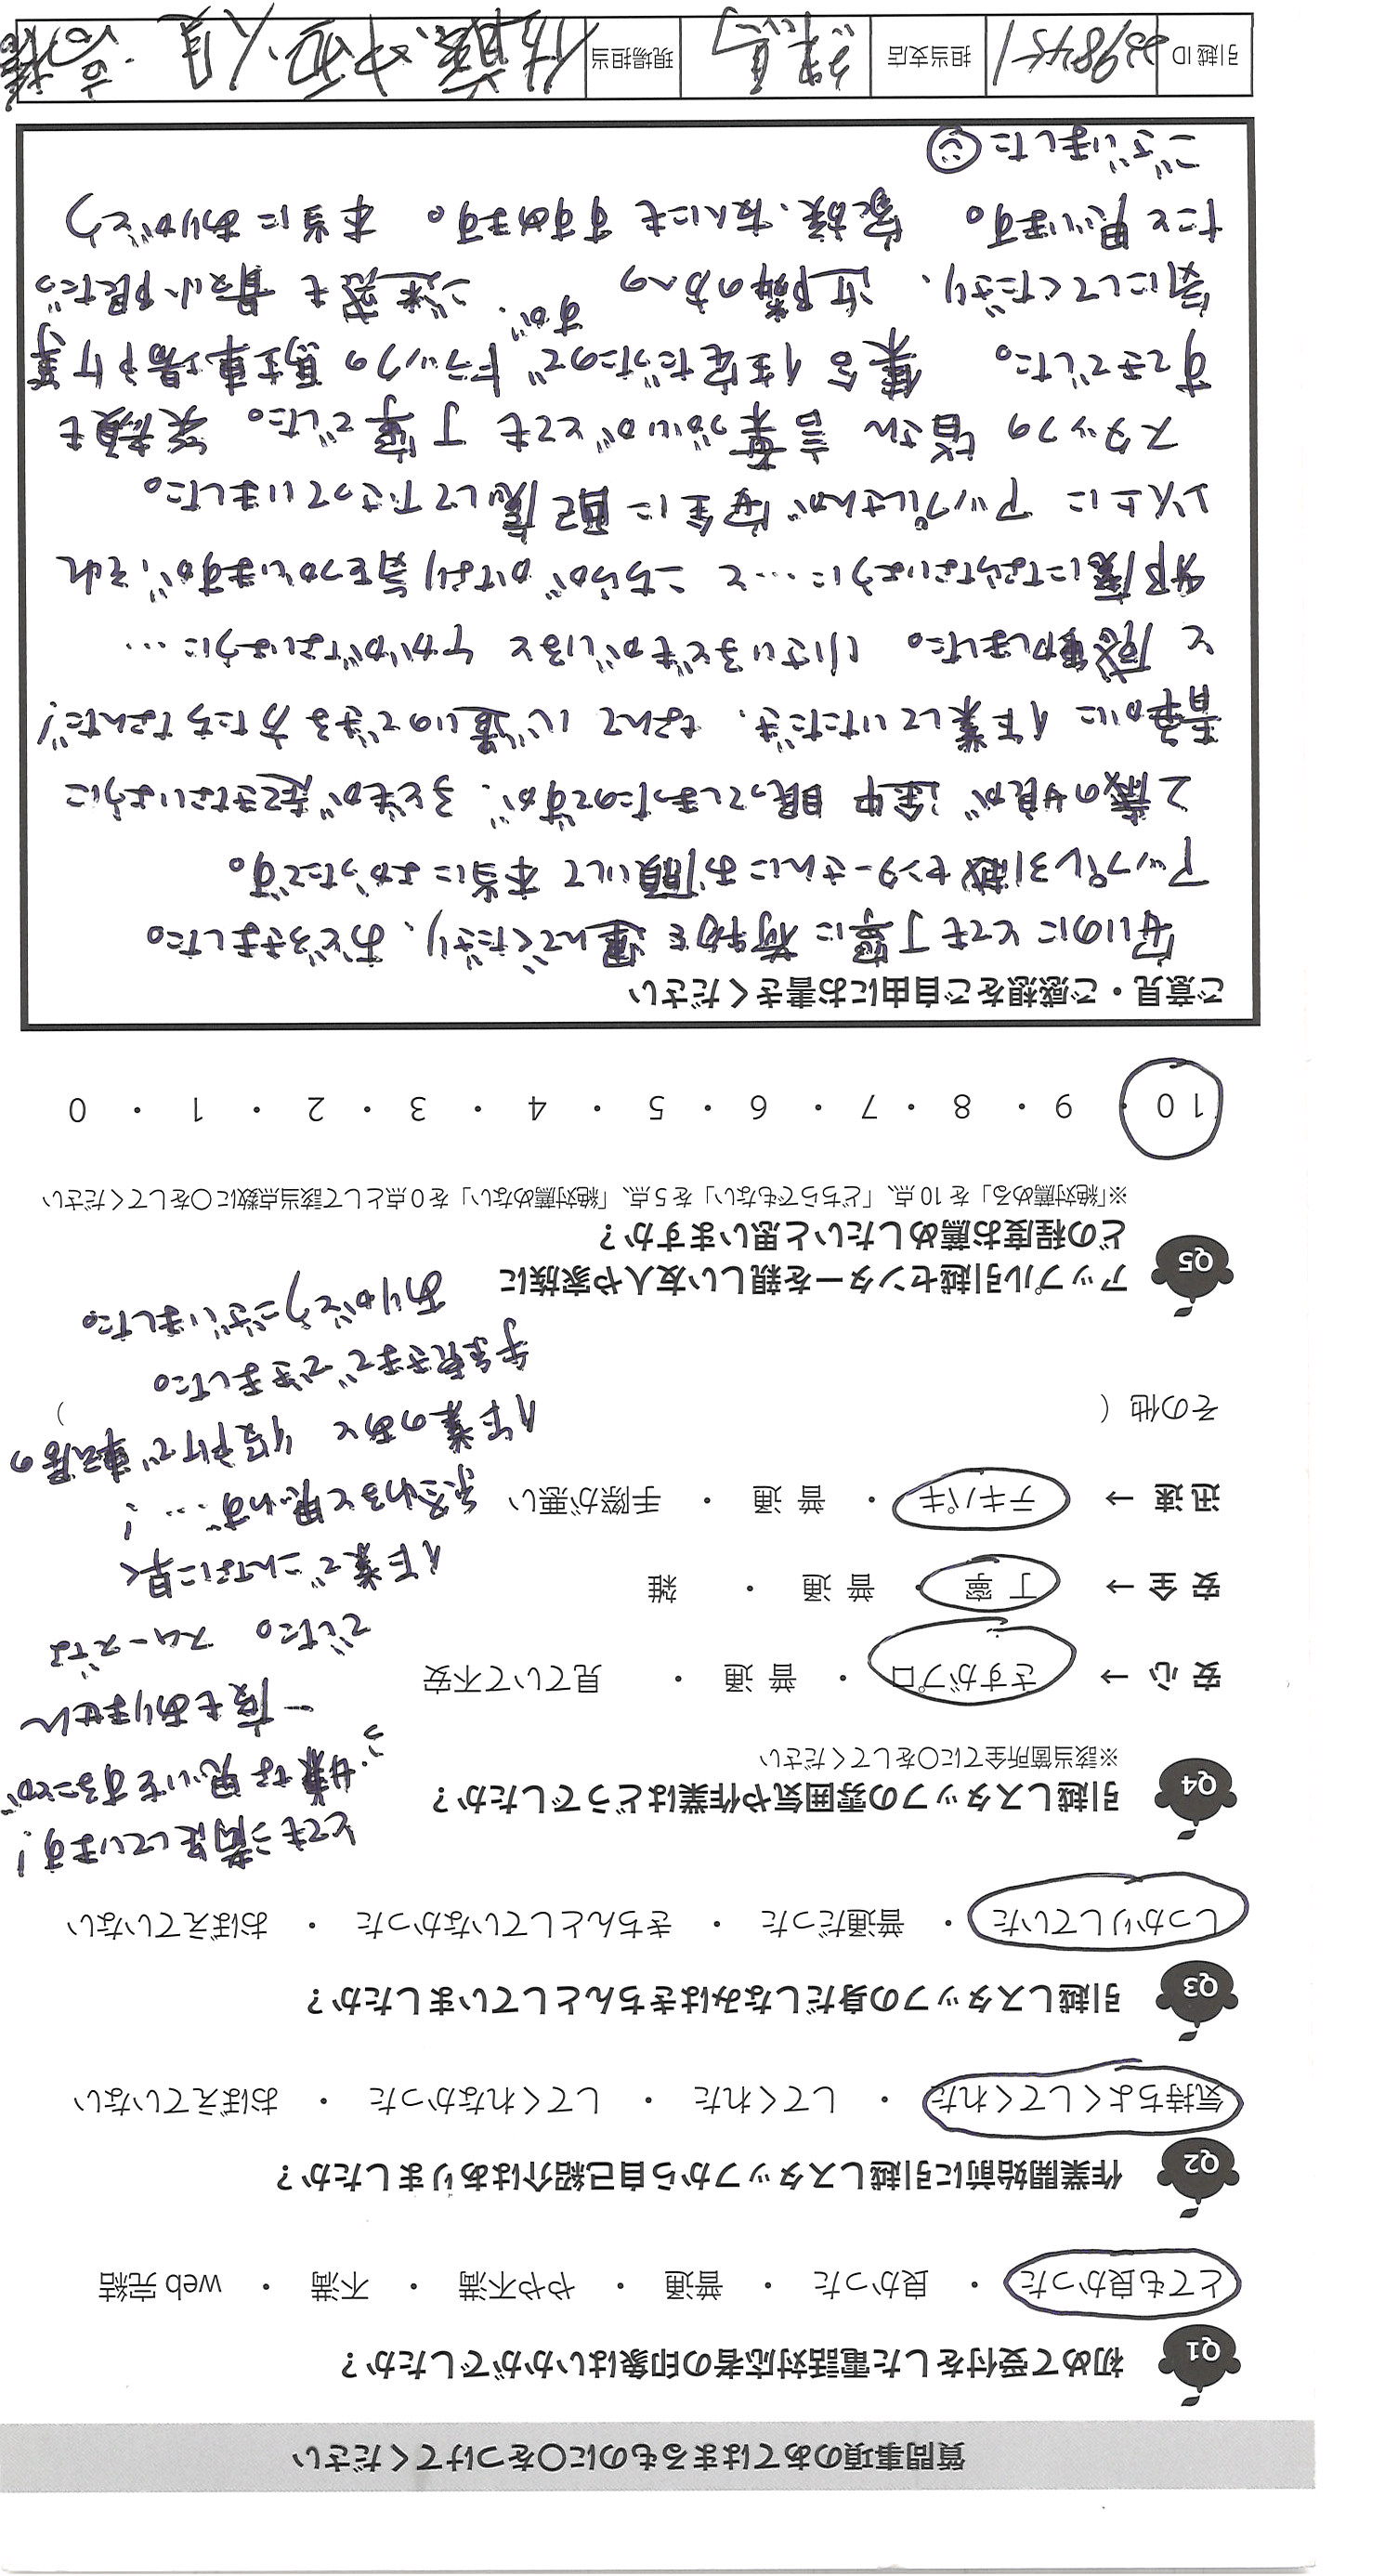 質問事項のあてはまるものに○をつけてください
Q1 初めて受付をした電話対応者の印象はいかがでしたか？
とても良かった ・ 良かった ・ 普通 ・ やや不満 ・ 不満 ・ web 完結
Q2 作業開始前に引越しスタッフから自己紹介はありましたか？
気持ちよくしてくれた ・ してくれた ・ してくれなかった ・ おぼえていない
Q3 引越しスタッフの身だしなみはきちんとしていましたか？
しっかりしていた ・ 普通だった ・ きちんとしていなかった ・ おぼえていない
Q4 引越しスタッフの雰囲気や作業はどうでしたか？
※該当箇所全てに○をしてください
安 心 → さすがプロ ・ 普 通 ・ 見ていて不安
安 全 → 丁 寧 ・ 普 通 ・ 雑
迅 速 → テキパキ ・ 普 通 ・ 手際が悪い
その他（ ）
とても満足しています！
嫌な思いをすることが
一度もありません
でした。スムーズな
作業でこんなに早く
終わると思わず…！
作業のあと 役所で転居の
手続きまでできました。
ありがとうございました。
Q5 アップル引越センターを親しい友人や家族に
どの程度お薦めしたいと思いますか？
※「絶対薦める」を 10 点、「どちらでもない」を 5 点、「絶対薦めない」を 0 点として該当点数に○をしてください
10 ・ 9 ・ 8 ・ 7 ・ 6 ・ 5 ・ 4 ・ 3 ・ 2 ・ 1 ・ 0
ご意見・ご感想をご自由にお書きください
安いのにとても丁寧に荷物を運んでくださり、おどろきました。
アップル引越センターさんにお願いして本当によかったです。
2歳の娘が途中眠ってしまったのですが、子どもが起きないように
静かに作業していただき、なんて心遣いのできる方たちなんだ！
と感動しました。小さい子どもがいると ケガがないように…
邪魔にならないように…と こちらがかなり気をつかいますが、それ
以上に アップルさんが安全に配慮して下さっていました。
スタッフの皆さん 言葉づかいがとても丁寧でした。笑顔も
すてきでした。集合住宅だったのでトラックの駐車場所等
気にしてくださり、近隣の方への ですが、ご迷惑も最小限だっ
たと思います。家族、友人にもすすめます。本当にありがとう
ございました☺
引越 ID 2398451 担当支店 練馬 現場担当 佐藤、中西、人見、高橋